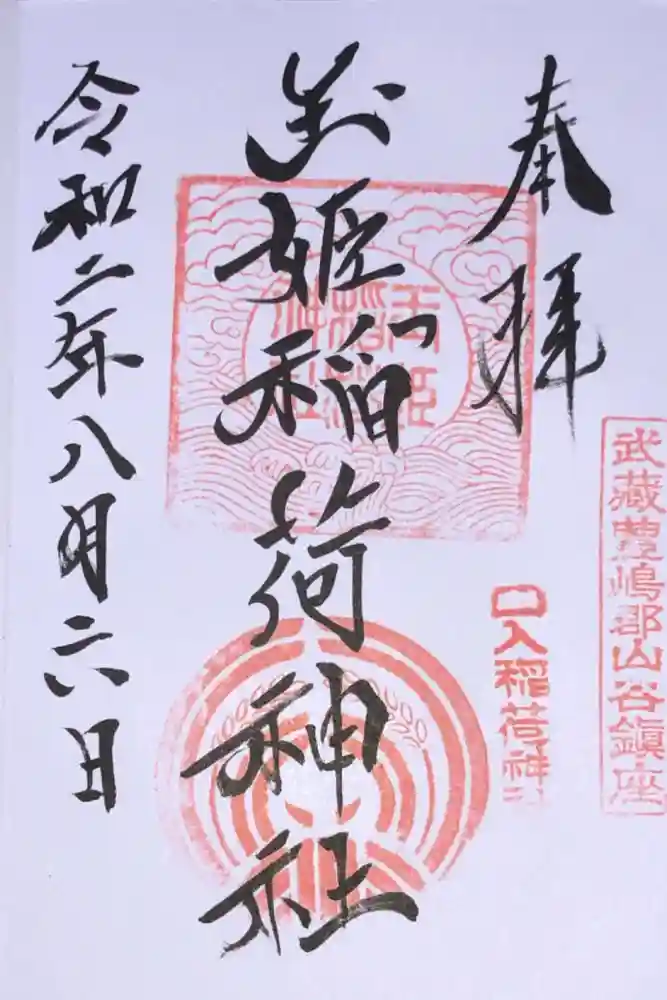 奉拝
武蔵豊嶋郡山谷鎮座
口入稲荷神社
玉姫稲荷神社
玉姫稲荷神社
令和二年八月六日